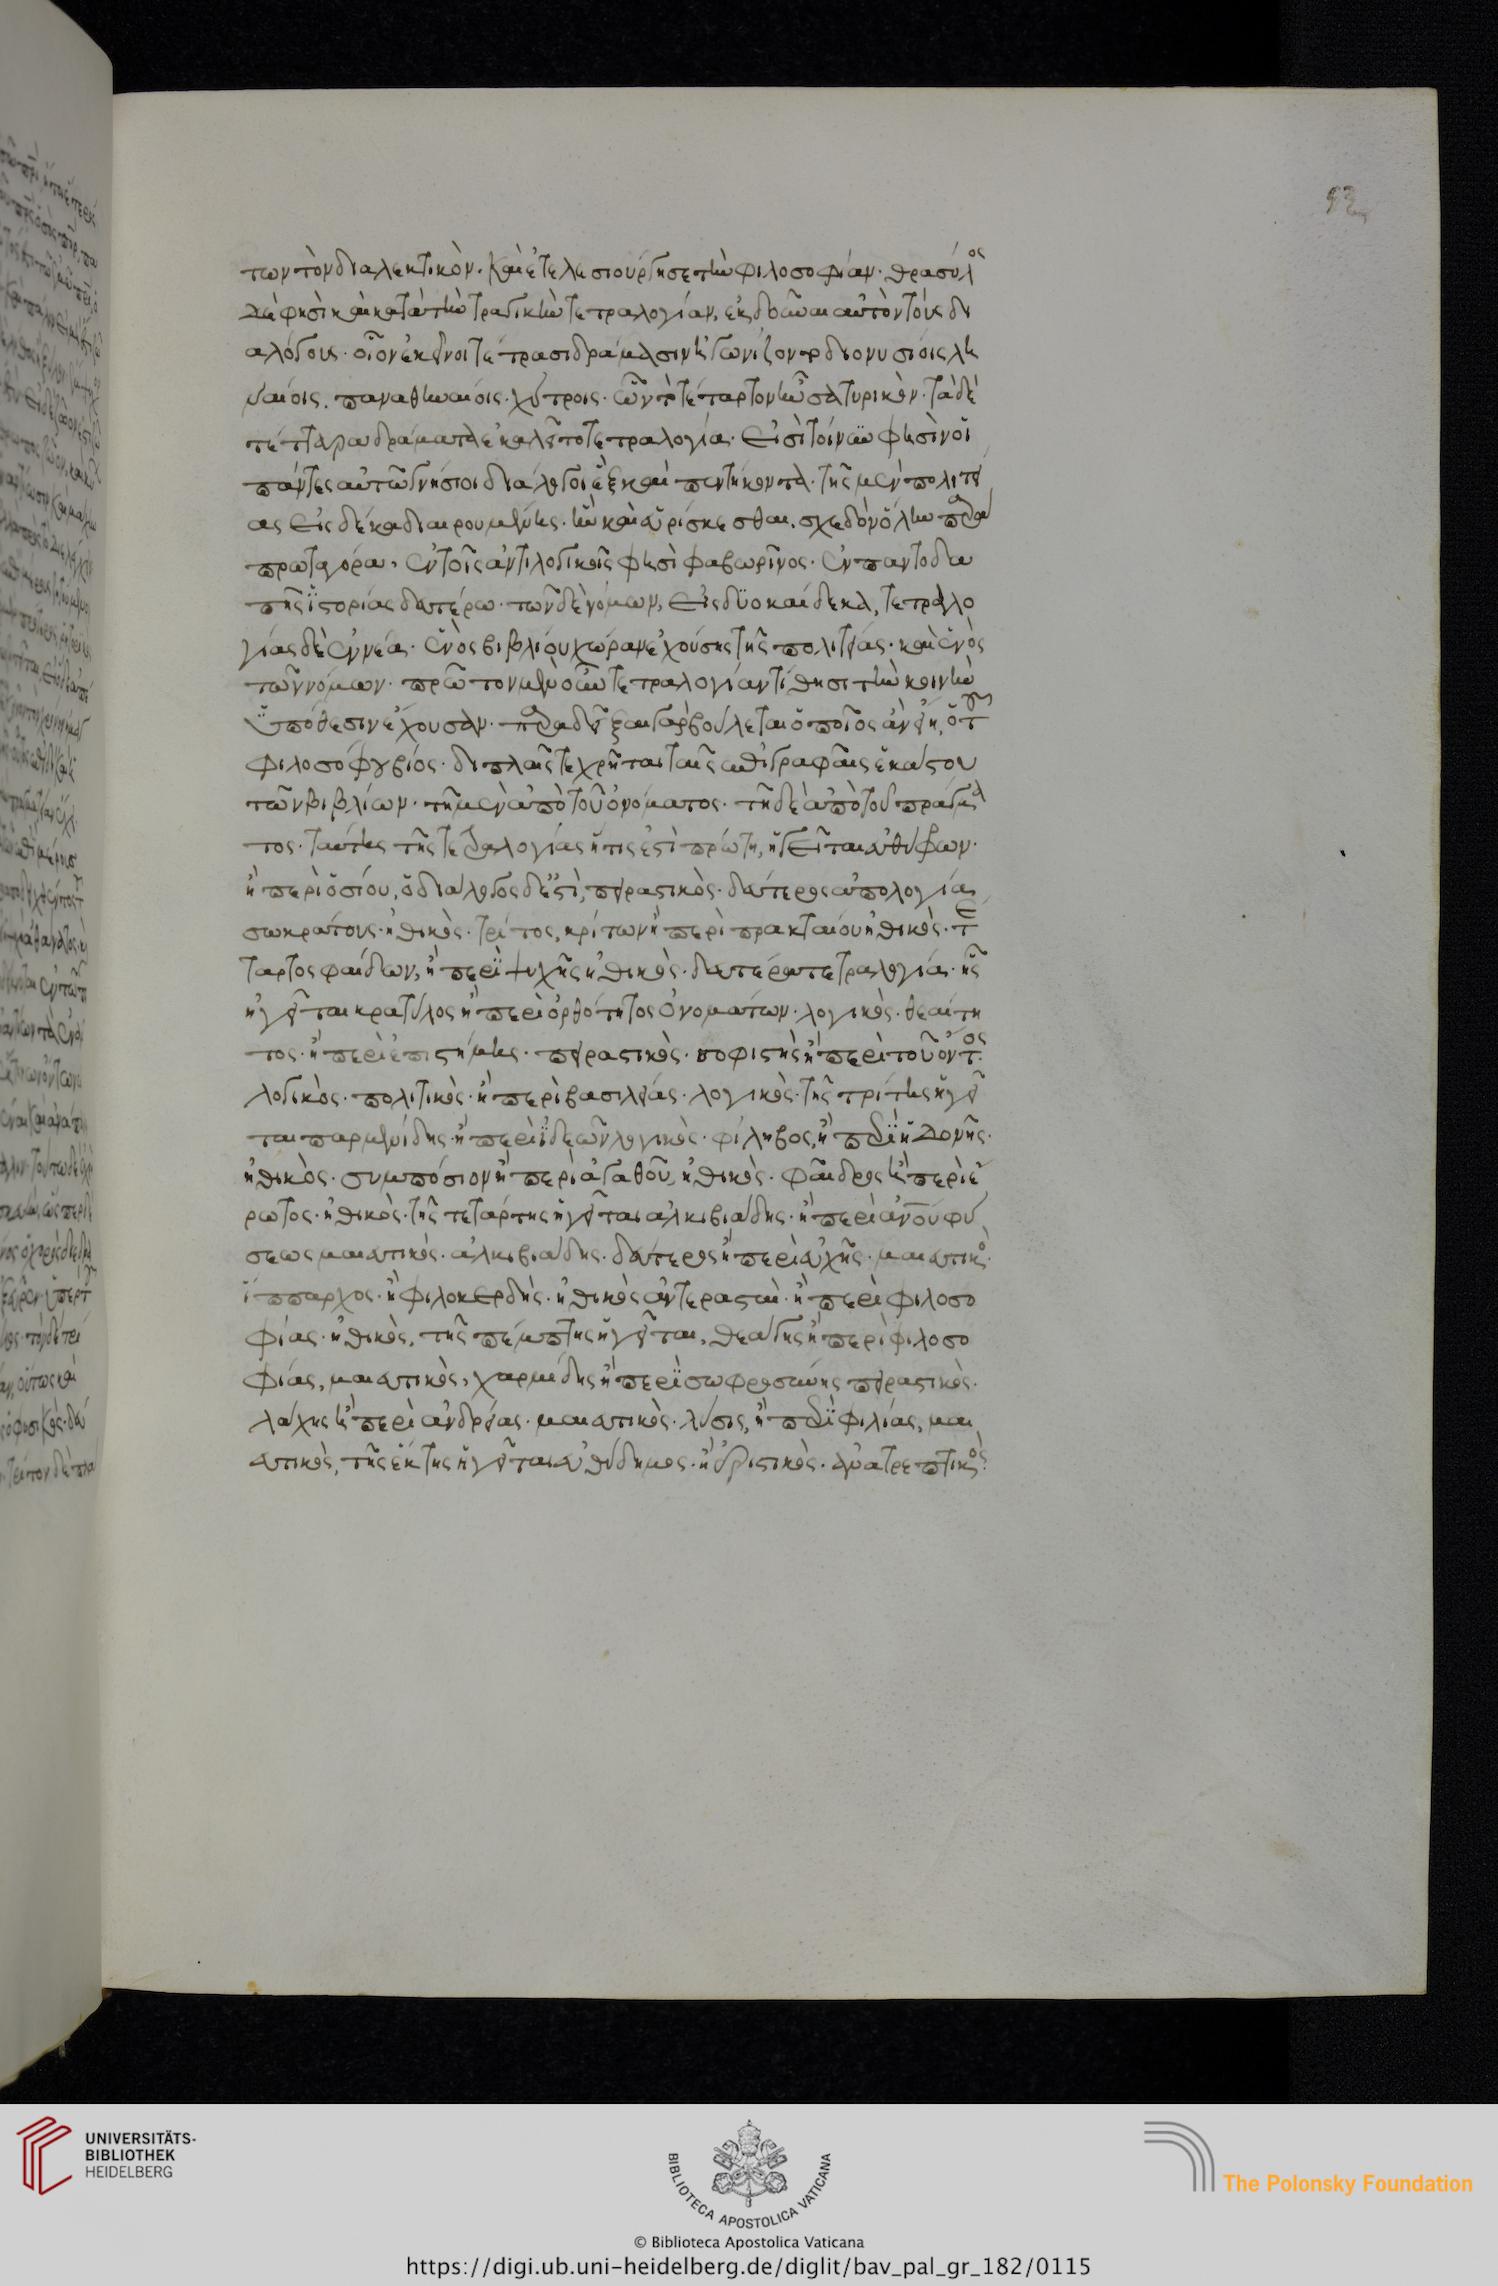 53
των τὸν διαλεκτικὸν. καὶ ἐτελεσιούργησε τὴν φιλοσοφίαν. θρασύλος
δέ φησὶ καὶ κατὰ τὴν τραγικὴν τετραλογίαν, ἐκδοῦναι αὐτὸν τοὺς δι
αλόγους. οἷον ἐκεῖνοι τέτρασι δράμασιν ἠγωνίζοντο διονυσίοις λη
ναίοις. παναθηναίοις. χύτροις. ὧν τὸ τέταρτον ἦν σατυρικὸν. τὰ δὲ
τέτταρα δράματα ἐκαλεῖτο τετραλογία. εἰσὶ τοίνυν φησὶν οἱ
πάντες αὐτῶ γνήσιοι διάλογοι ἓξ καὶ πεντήκοντα. τῆς μὲν πολιτεί
ας εἰς δέκα διαιρουμένης. ἣν καὶ εὑρίσκεσθαι. σχεδὸν ὅλην παρὰ
πρωταγόρα. ἐν τοῖς ἀντιλογικοῖς φησὶ φαβωρῖνος. ἐν παντοδα
πῆς ἱστορίας δευτέρω. τῶν δὲ νόμων, εἰς δυοκαίδεκα, τετραλο
γίας δὲ ἐννέα. ἑνὸς βιβλίου χώραν ἐχούσης τῆς πολιτείας. καὶ ἑνὸς
τῶν νόμων. πρῶτον μὲν οὖν τετραλογίαν τίθησι τὴν κοινὴν
ὑπόθεσιν ἔχουσαν. παραδεῖξαι γὰρ βούλεται ὁποῖος ἂν εἴη, ὁ τοῦ
φιλοσόφου βίος. διπλαῖς τε χρῆται ταῖς ἐπιγραφαῖς ἑκάστου
τῶν βιβλίων. τῆ μὲν ἀπὸ τοῦ ὀνόματος. τῆ δὲ ἀπὸ τοῦ πράγμα
τος. ταύτης τῆς τετραλογίας ἥτις ἐστὶ πρώτη, ἡγεῖται εὐθύφρων.
ἢ περὶ ὁσίου, ὁ διάλογος δ' ἐστὶ, πειραστικὸς. δεύτερος ἀπολογία
σωκράτους. ἠθικὸς. τρίτος, κρίτων ἢ περὶ πρακταίου ἠθικὸς. τέ
ταρτος φαίδων, ἢ περὶ ψυχῆς ἠθικὸς. δευτέρα τετραλογία. ἧς
ἡγεῖται κρατύλος ἢ περὶ ὀρθότητος ὀνομάτων. λογικὸς. θεαίτη
τος. ἢ περὶ ἐπιστήμης. πειραστικὸς. σοφιστὴς ἢ περὶ τοῦ ὄντος.
λογικὸς. πολιτικὸς. ἢ περὶ βασιλείας. λογικὸς. τῆς τρίτης ἡγεῖ
ται παρμενίδης. ἢ περὶ ἰδεῶν λογικὸς. φίληβος, ἢ περὶ ἡδονῆς.
ἠθικὸς. συμπόσιον ἢ περὶ ἀγαθοῦ, ἠθικὸς. φαῖδρος ἢ περὶ ἔ
ρωτος. ἠθικὸς. τῆς τετάρτης ἡγεῖται ἀλκιβιάδης. ἢ περὶ ἀνου φύ
σεως μαιευτικὸς. ἀλκιβιάδης. δεύτερος ἢ περὶ εὐχῆς. μαιευτικὸς.
ἵππαρχος. ἢ φιλοκερδὴς. ἠθικὸς ἀντερασταὶ. ἢ περὶ φιλοσο
φίας. ἠθικὸς, τῆς πέμπτης ἡγεῖται, θεάγης ἢ περὶ φιλοσο
φίας, μαιευτικὸς, χαρμίδης ἢ περὶ σωφροσύνης πειραστικὸς.
λάχης ἢ περὶ ἀνδρείας. μαιευτικὸς. λύσις, ἢ περὶ φιλίας, μαι
ευτικὸς, τῆς ἕκτης ἡγεῖται εὐθύδημος. ἢ ἐριστικὸς. ἀνατρεπτικὸς.
UNIVERSITÄTS-
BIBLIOTHEK
HEIDELBERG
BIBLIOTECA APOSTOLICA VATICANA
The Polonsky Foundation
© Biblioteca Apostolica Vaticana
https://digi.ub.uni-heidelberg.de/diglit/bav_pal_gr_182/0115